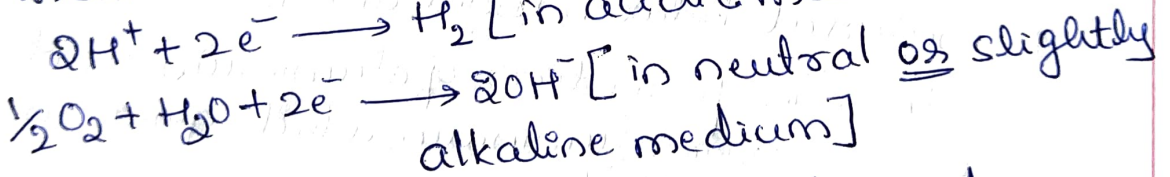 2H⁺ + 2e⁻ ⟶ H₂ [in
½O₂ + H₂O + 2e⁻ ⟶ 2OH⁻ [in neutral or slightly
alkaline medium]